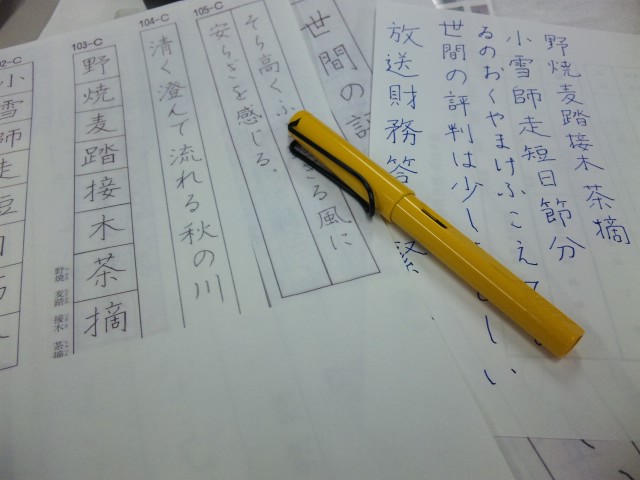 野焼麦踏接木 茶摘
小雪師走短日節分
ゐのおくやまけふこえ
世間の評判は少し しい
放送財務答 緊
世間の評
105-C
そら高くふ きる風に
安らぎを感じる。
104-C
清く澄んで流れる秋の川
103-C
野焼麦踏接木茶摘
野焼 麦踏 接木 茶摘
2-C
小雪師走短日節